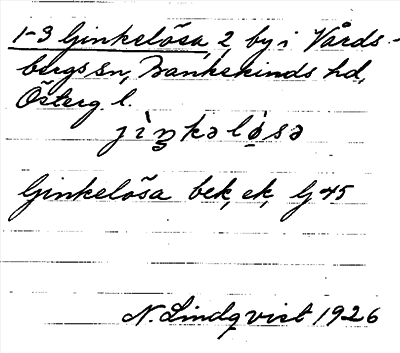 1-3 Ginkelösa, 2, by i Vårds-
bergs sn, Bankekinds hd,
Österg. l.
jìŋkəlò̱sə
Ginkelösa bek, ek, Gj 45
N. Lindqvist 1926